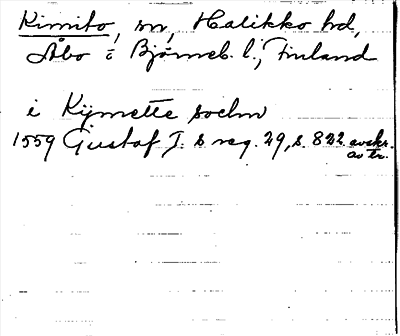 Kimito, sn, Halikko hd,
Åbo o Björneb. l., Finland
i Kijmette sochn
1559 Gustaf I. s reg. 29, s. 822 avskr.
av tr.